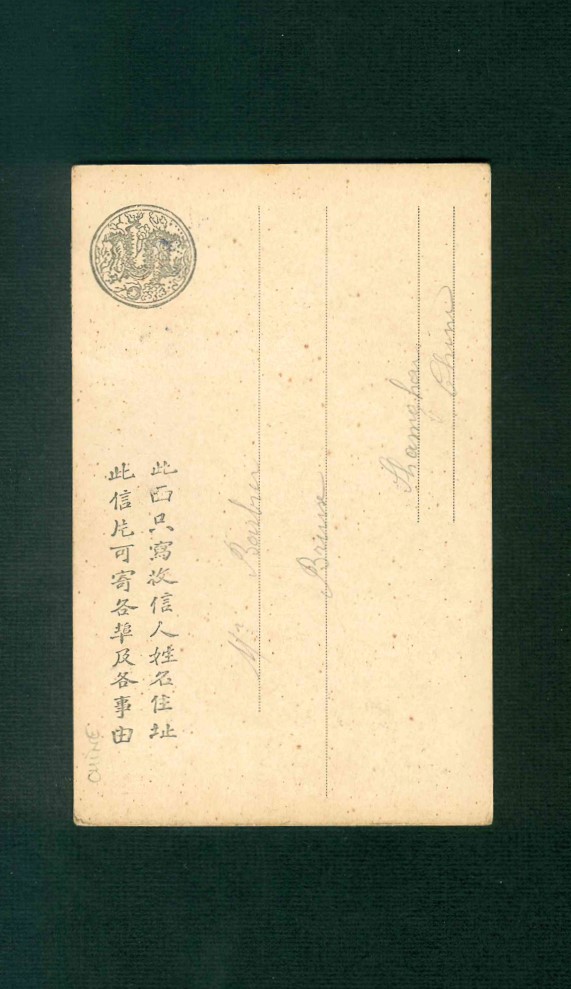 此面只寫收信人姓名住址
此信片可寄各埠及各事由
Mr Barbier
Shanghai
Chine
CHINE